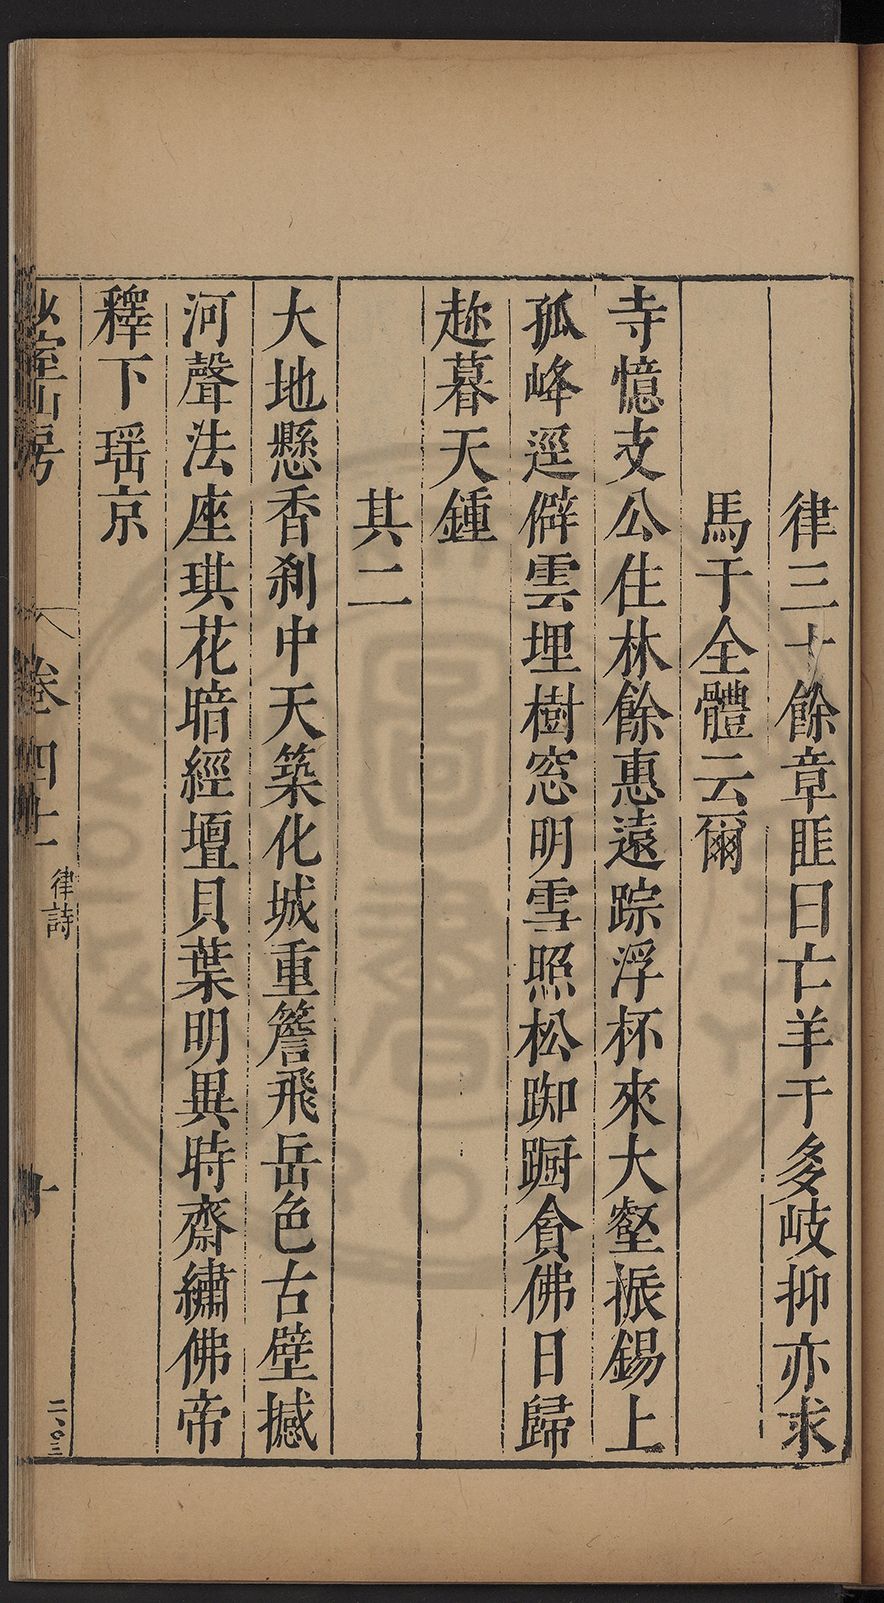 律三十餘章匪曰亡羊于多岐抑亦求
馬于全體云爾
寺憶支公住林餘惠遠踪浮杯來大壑振錫上
孤峰逕僻雲埋樹窓明雪照松踟蹰貪佛日歸
趂暮天鍾
其二
大地懸香刹中天築化城重簷飛岳色古壁撼
河聲法座琪花暗經壇貝葉明異時齋繡佛帝
釋下瑶京
少室山房
卷四十
律詩
十